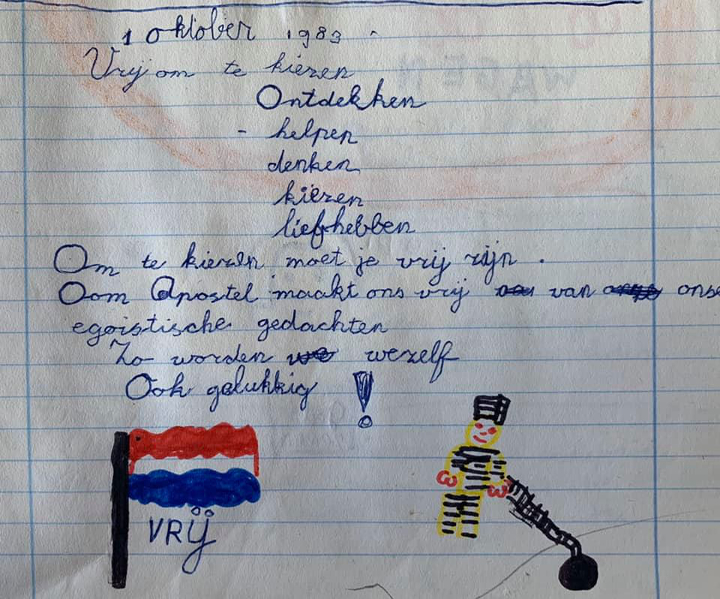 1 oktober 1983
Vrij om te kiezen
Ontdekken
- helpen
denken
kiezen
liefhebben
Om te kiezen moet je vrij zijn.
Oom Apostel maakt ons vrij van onse
egoïstische gedachten
Zo worden wezelf
Ook gelukkig !
VRIJ